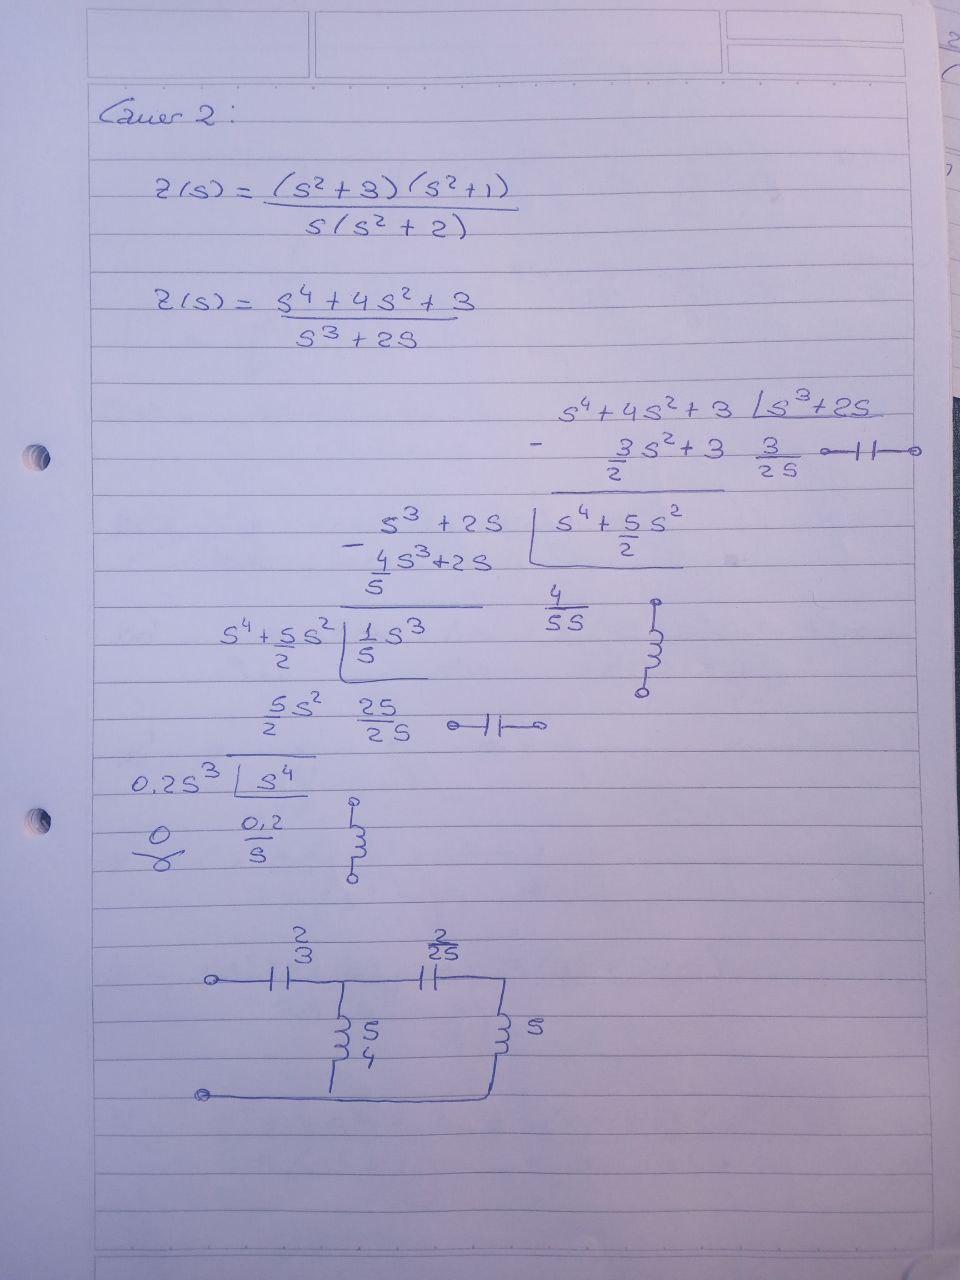 Cauer 2:
Z(s) = (s² + 3)(s² + 1)
s(s² + 2)
Z(s) = s⁴ + 4s² + 3
s³ + 2s
s⁴ + 4s² + 3 | s³ + 2s
- 3/2 s² + 3 3/2s
s³ + 2s | s⁴ + 5/2 s²
- 4/5 s³ + 2s 4/5s
s⁴ + 5/2 s² | 1/5 s³
5/2 s² 25/2s
0.2s³ | s⁴
0 0.2/s
2/3 2/25
5/4 5